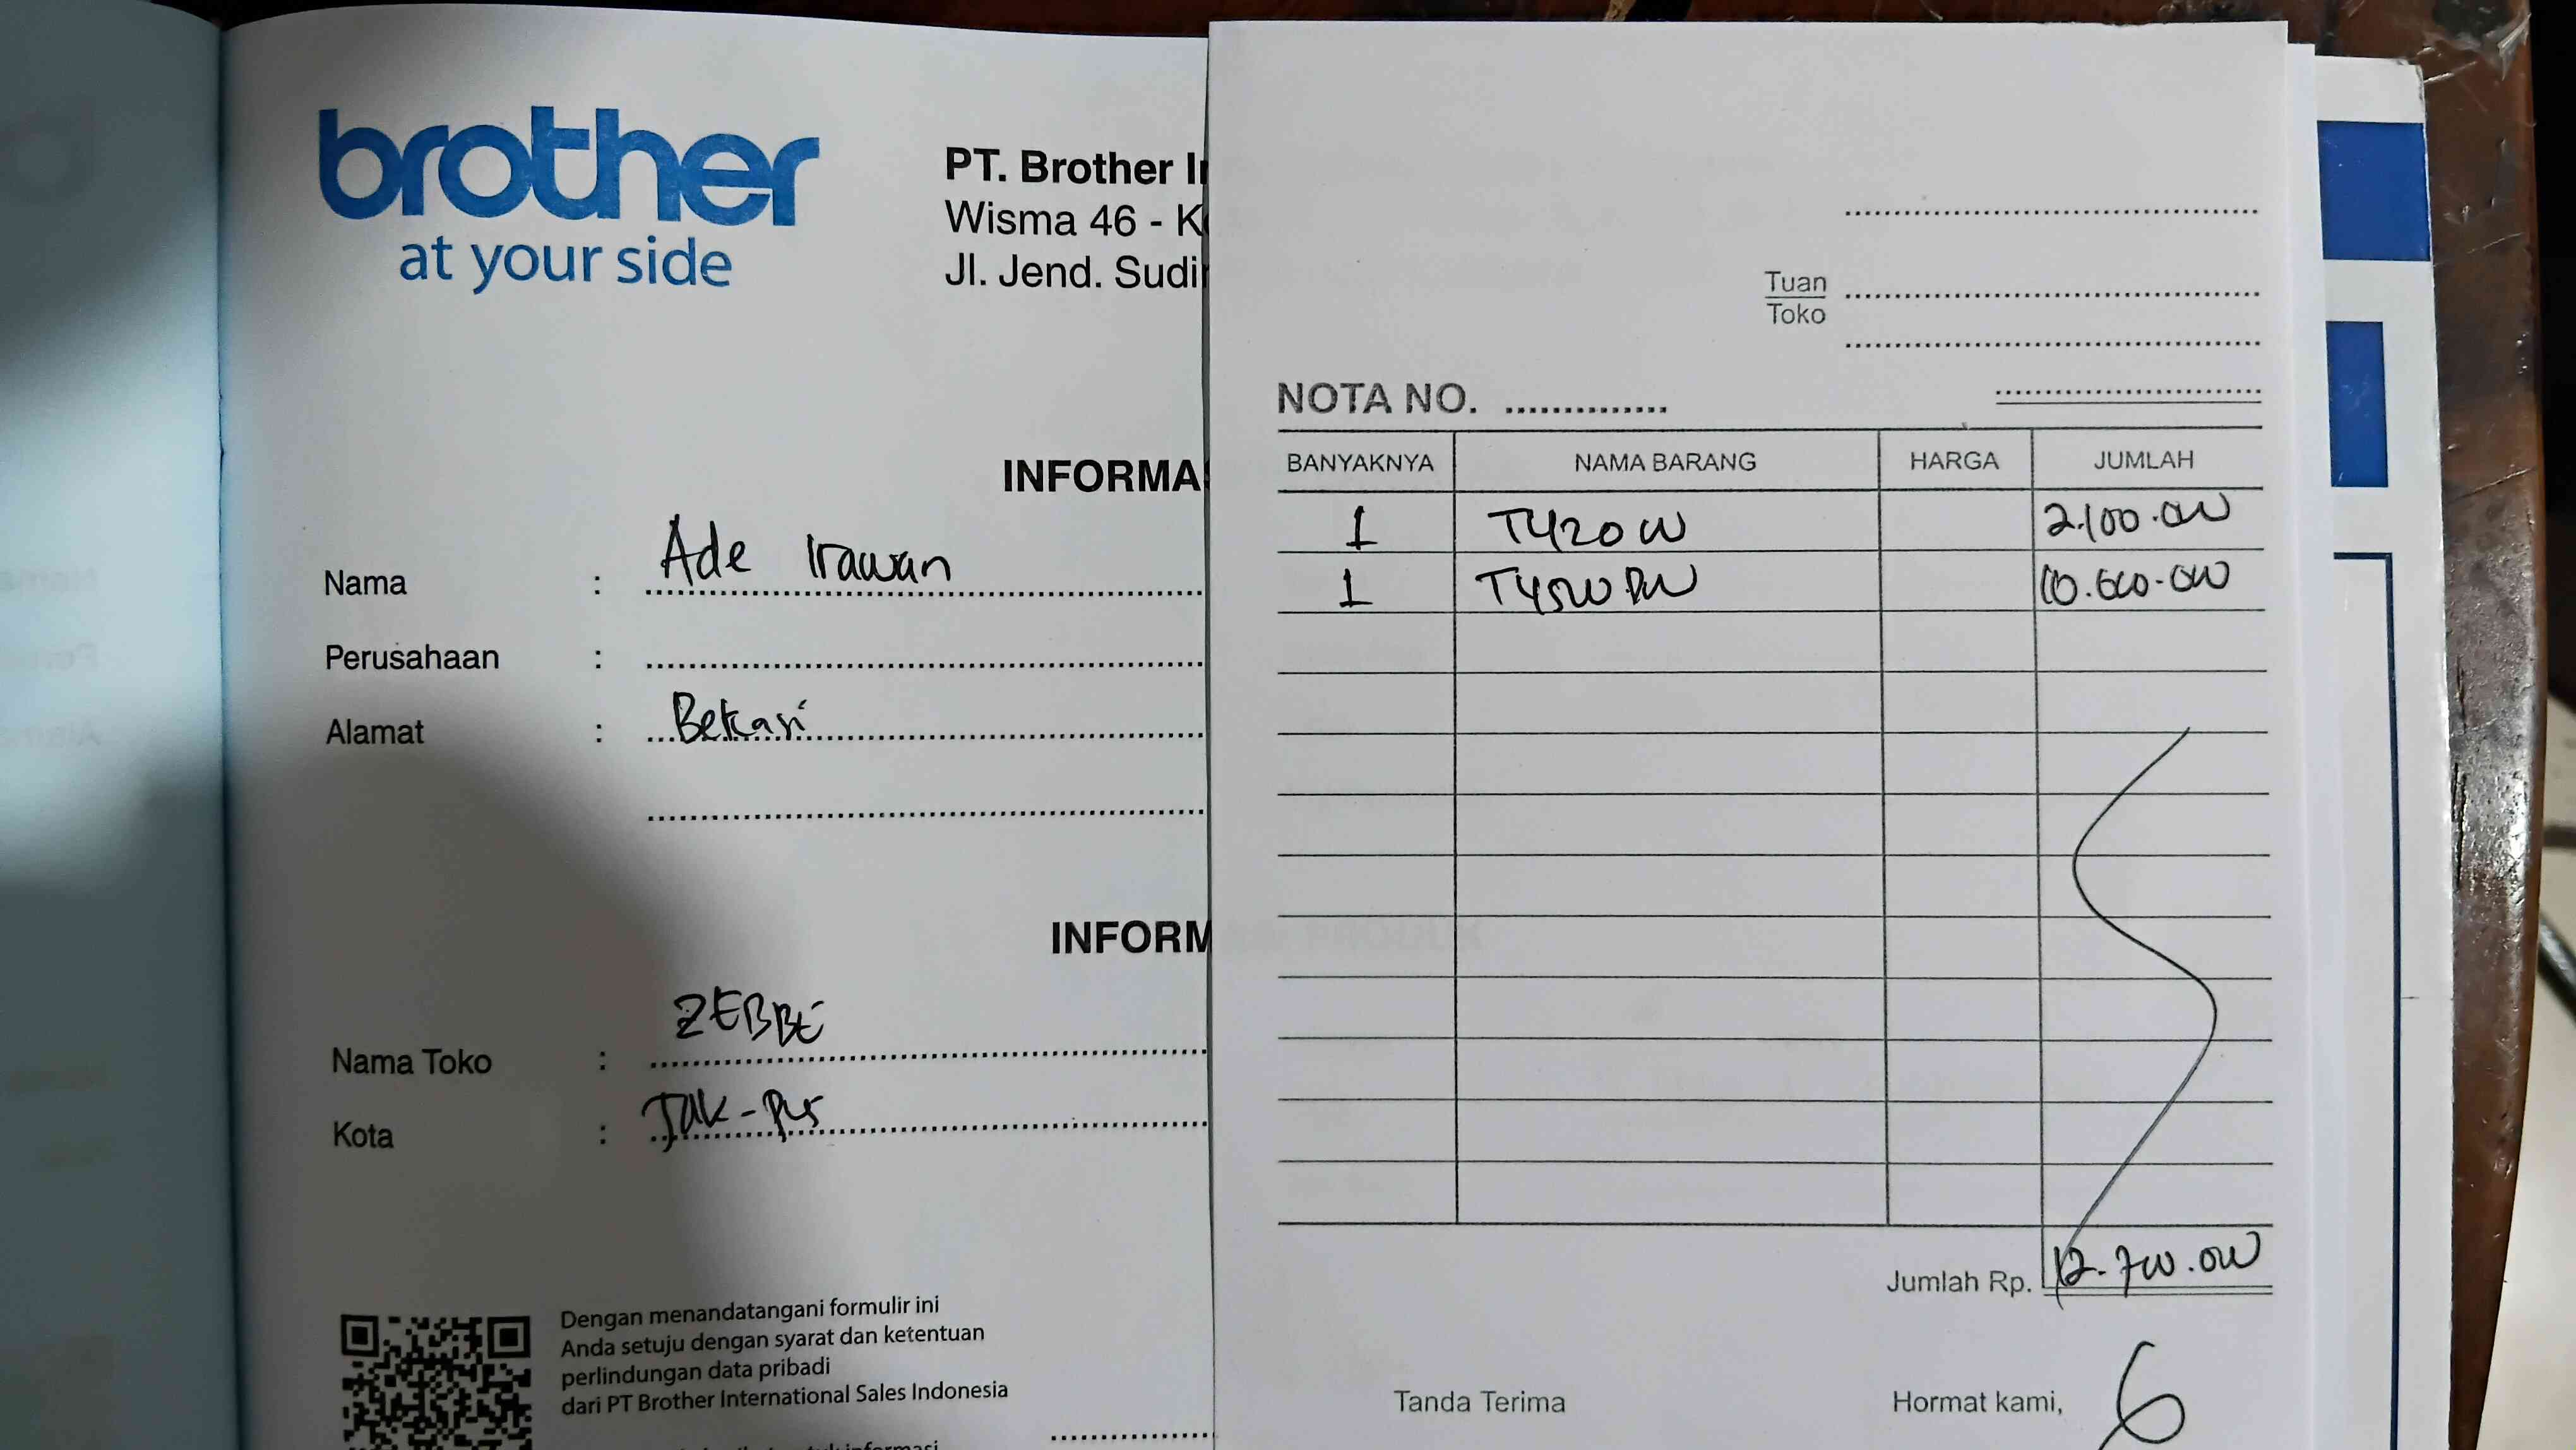 brother
at your side
PT. Brother I
Wisma 46 - K
Jl. Jend. Sudir
INFORMA
Nama : Ade Irawan
Perusahaan :
Alamat : Bekasi
INFORM
Nama Toko : ZEBBE
Kota : Jak-Pus
Dengan menandatangani formulir ini
Anda setuju dengan syarat dan ketentuan
perlindungan data pribadi
dari PT Brother International Sales Indonesia
Tuan
Toko
NOTA NO.
BANYAKNYA NAMA BARANG HARGA JUMLAH
1 T420W 2.100.000
1 T4500DW 10.600.000
Jumlah Rp. 12.700.000
Tanda Terima Hormat kami,